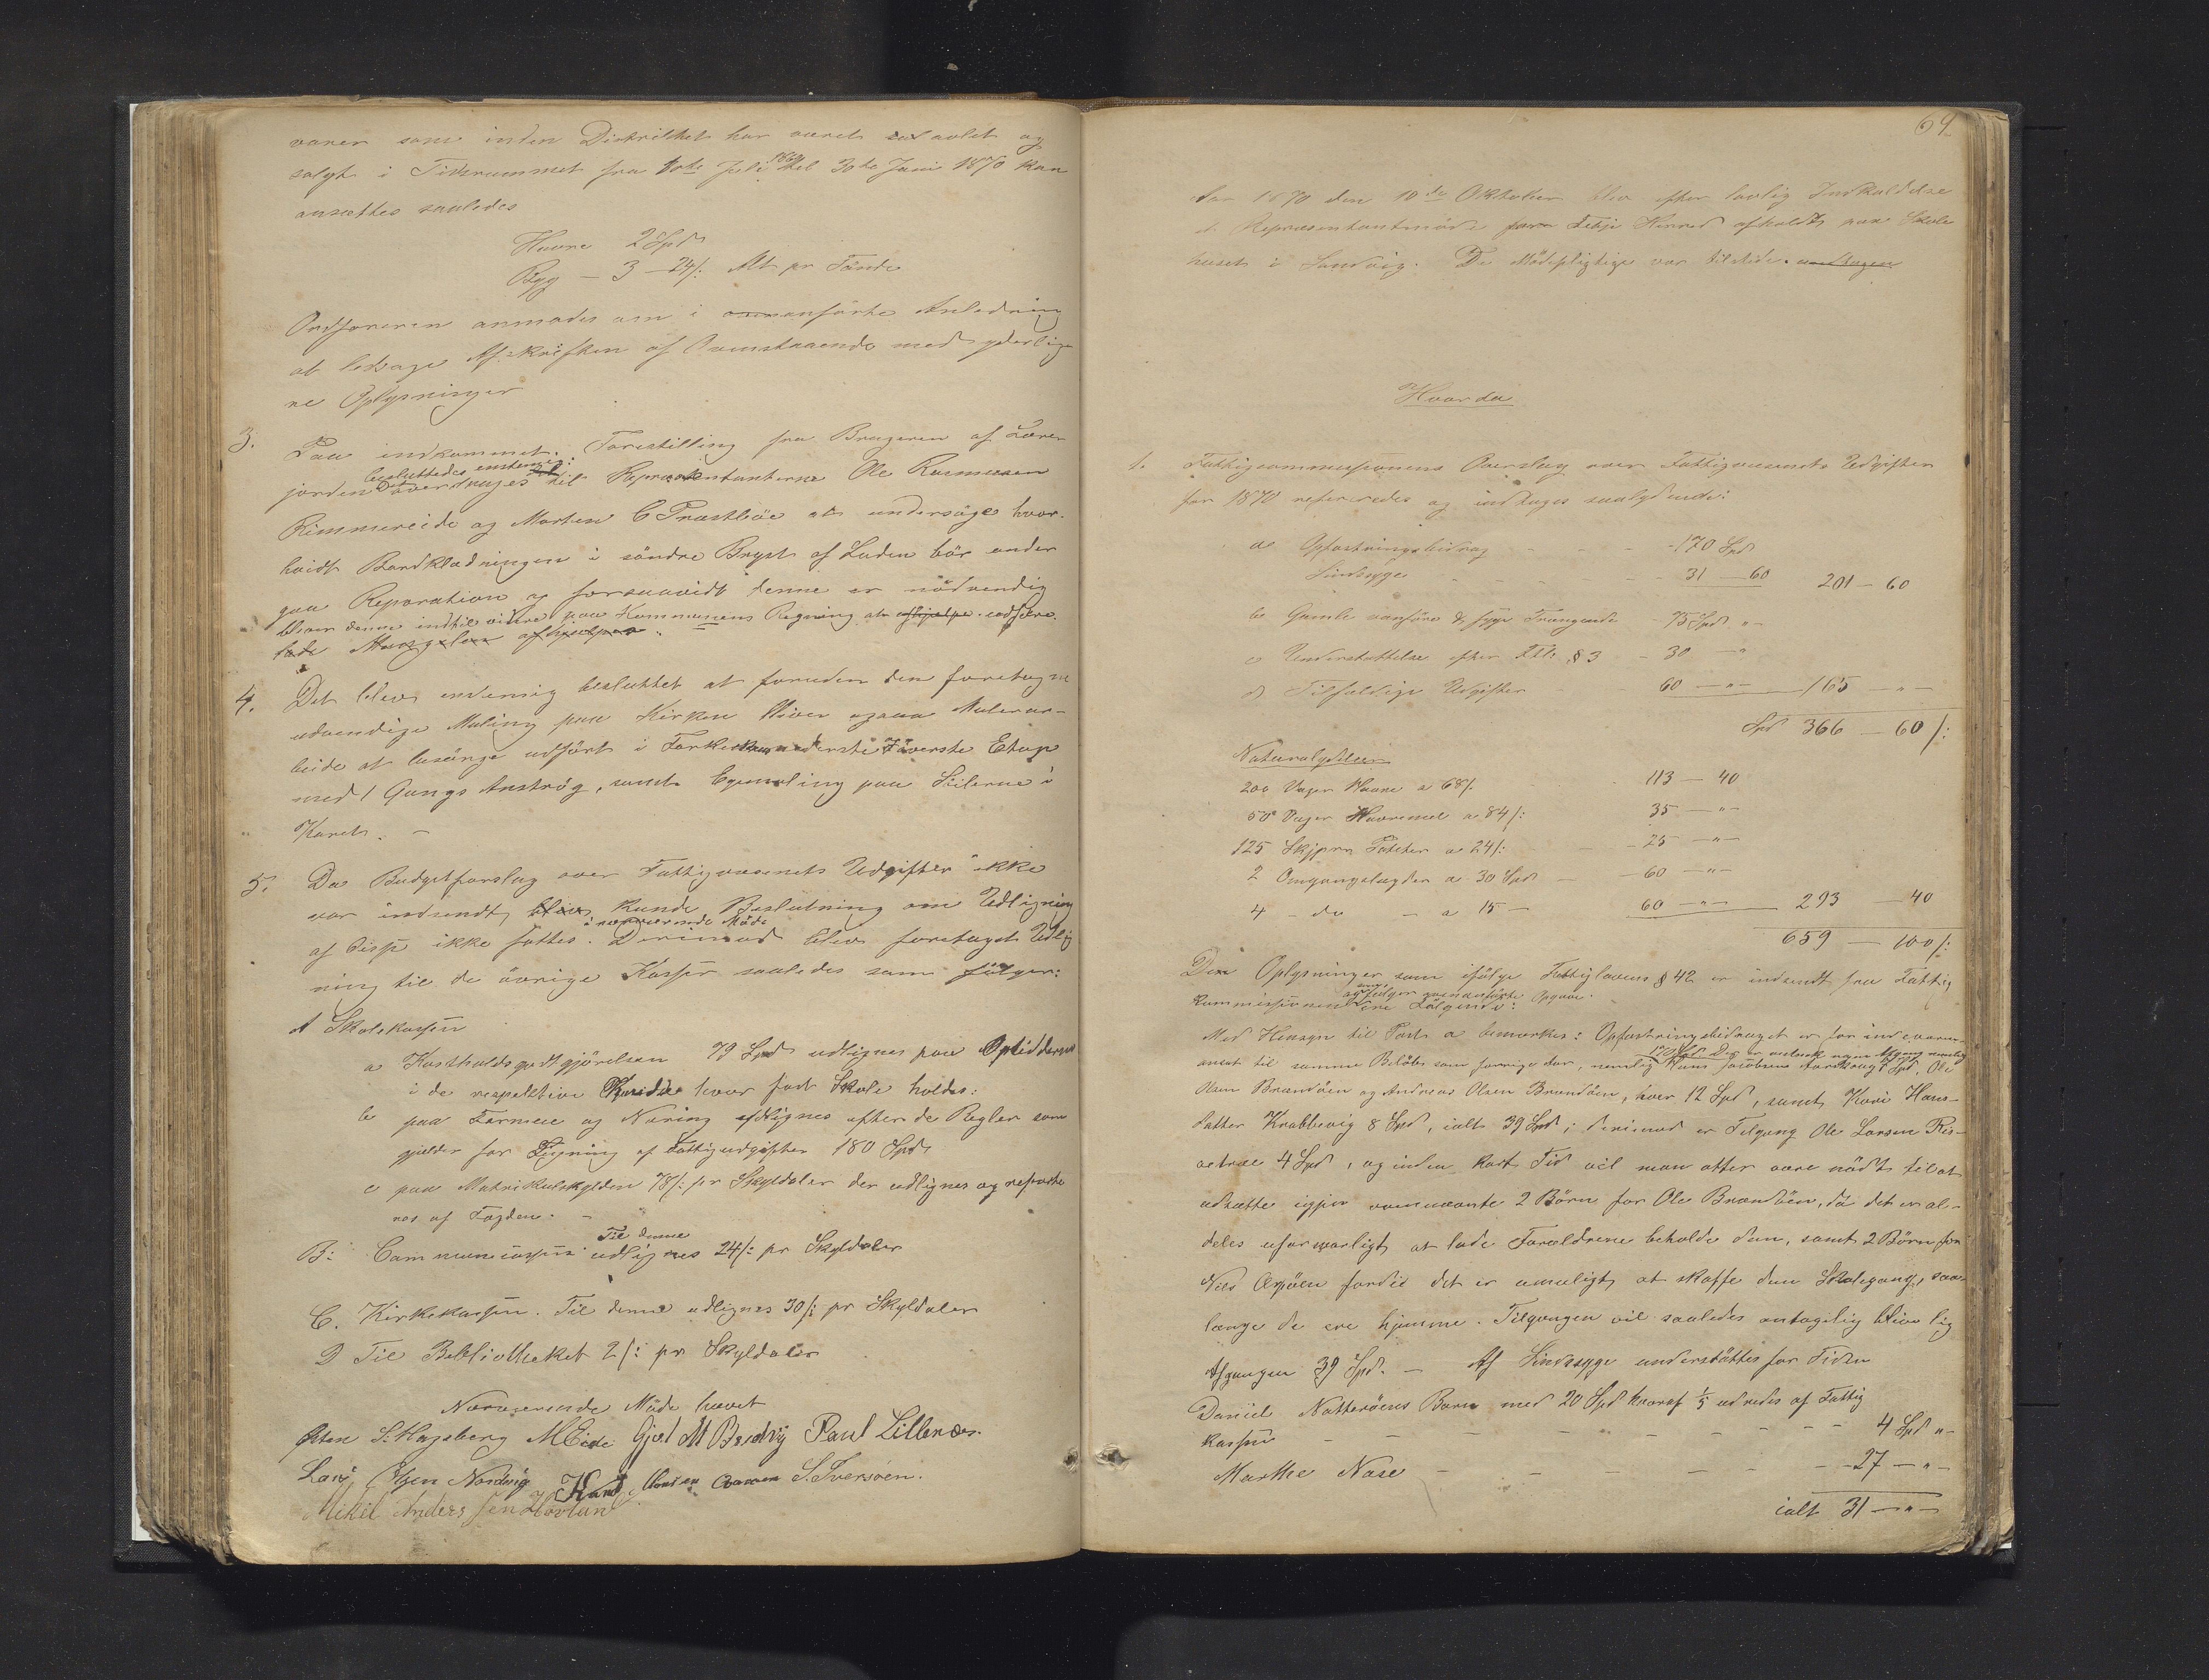 varer som inden Distriktet har været avlet og
solgt i Tidsrummet fra 1ste Juli 1869 til 30te Juni 1870 kan
ansættes saaledes
Havre 2 Spd
Byg — 3 — 24/: Alt pr Tönde
Ordföreren anmodes om i anförte Anledning
at besörge Afskriften af Ovenstaaende med yderlige
re Oplysninger
3. Paa indkommet Forestilling fra Brugeren af Lærer
besluttedes eenstemig:
jorden overdrages til Repræsentanterne Ole Rasmussen
Rimmereide og Morten C Præstböe at undersöge hvor-
hvidt Bordklædningen i söndre Bryst af Laden bör under
gaa Reparation og forsaavidt denne er nödvendig
denne indtil videre paa Kommunens Regning at afhjelpe udföre.
lade Manglen afhjelpe
4. Det blev eenstemig besluttet at foruden den foretagne
udvendige Maling paa Kirken bliver ogsaa Malerar-
beide at besörge udfört i nederste & överste Etage
med 1 Gangs Anströg, samt Egemaling paa Stilerne i
Koret. —
5. Da Budgetforslag over Fattigvæsenets Udgifter ikke
var indsendt, kunde Beslutning om Udligning
i nærværende Möde
af Disse ikke fattes. Derimod blev foretaget Udlig
ning til de övrige Kasser saaledes som fölger:
A Skolekassen
a Kostholdsgodtgjörelsen 79 Spd udlignes paa Opsidderne
i de respektive Kredse hvor fast Skole holdes:
b paa Formue og Næring udlignes efter de Regler som
gjælder for Ligning af Fattigudgifter 180 Spd
c paa Matrikulskylden 78/: pr Skyldaler der udlignes og reparte
res af Fogden. —
Til denne
B: Communecassen udlignes 24/: pr Skyldaler
C. Kirkekassen. Til denne udlignes 30/: pr Skyldaler
D Til Bibliotheket 2/: pr Skyldaler
Nærværende Möde hævet
Östen S. Hageberg M Eide Gjert M Brodvig Paul Lillenæs.
Lars Olsen Nordvig Knud S. Iversöen.
Mikel Anderssen Hovlan
69
Aar 1870 den 10de Oktober blev efter lovlig Indkaldelse
et Repræsentantmöde for Fitje Herred afholdt paa Skole
huset i Sandvig. De Mödepligtige var tilstede. undtagen
Hvorda
1. Fattigcommissionens Overslag over Fattigvæsenets Udgifter
for 1870 refereredes og indtages saalydende:
a Opfostringsbidrag - - - 170 Spd
Sindssyge - - - - - 31 — 60 201 — 60
b Gamle vanföre & syge Trængende - 75 Spd "-
c Understöttelse efter § 3 - 30 — "
d Tilfældige Udgifter - 60 — " — 165 — " —
Spd 366 — 60/:
Naturalydelser
200 Vager Havre a 68/: 113 — 40
50 Vager Havremel a 84/: 35 — " —
125 Skjpr Poteter a 24/: - 25 — "
2 Omgangslægder a 30 Spd — - 60 — " —
4 do — a 15 — 60 — " — 293 — 40
659 — 100/:
Den Oplysninger som ifölge Fattiglovens § 42 er indsendt fra Fattig
som fölger
kommissionen ere Fölgende:
Med Hensyn til Post a bemærkes: Opfostringsbidraget er for indeværen
170 Spd
anset til samme Belöb som forrige Aar, nemlig Hans Jacobsens Spd, Ole
Olsen Brandöen og Andreas Olsen Brandöen, hver 12 Spd, samt Kari Hans-
datter Krabbevig 8 Spd, ialt 39 Spd; derimod er Tilgang Ole Larsen Ris-
4 Spd, og inden kort Tid vil man atter være nödt til at
udsætte igjen ovennævnte 2 Börn for Ole Brandöen, da det er al-
deles uforsvarligt at lade Forældrene beholde dem, samt 2 Börn for
Nils fordi det er umuligt at skaffe dem Skolegang, saa-
længe de ere hjemme. Tilgangen vil saaledes antagelig blive lig
Afgangen 39 Spd. — Af Sindssyge understöttes for Tiden
Daniel Natteröens Barn med 20 Spd hvoraf 1/5 udredes af Fattig
kassen - - - - - - - - 4 Spd "-
Marthe Nase - - - - - - 27 — " —
ialt 31 — " —